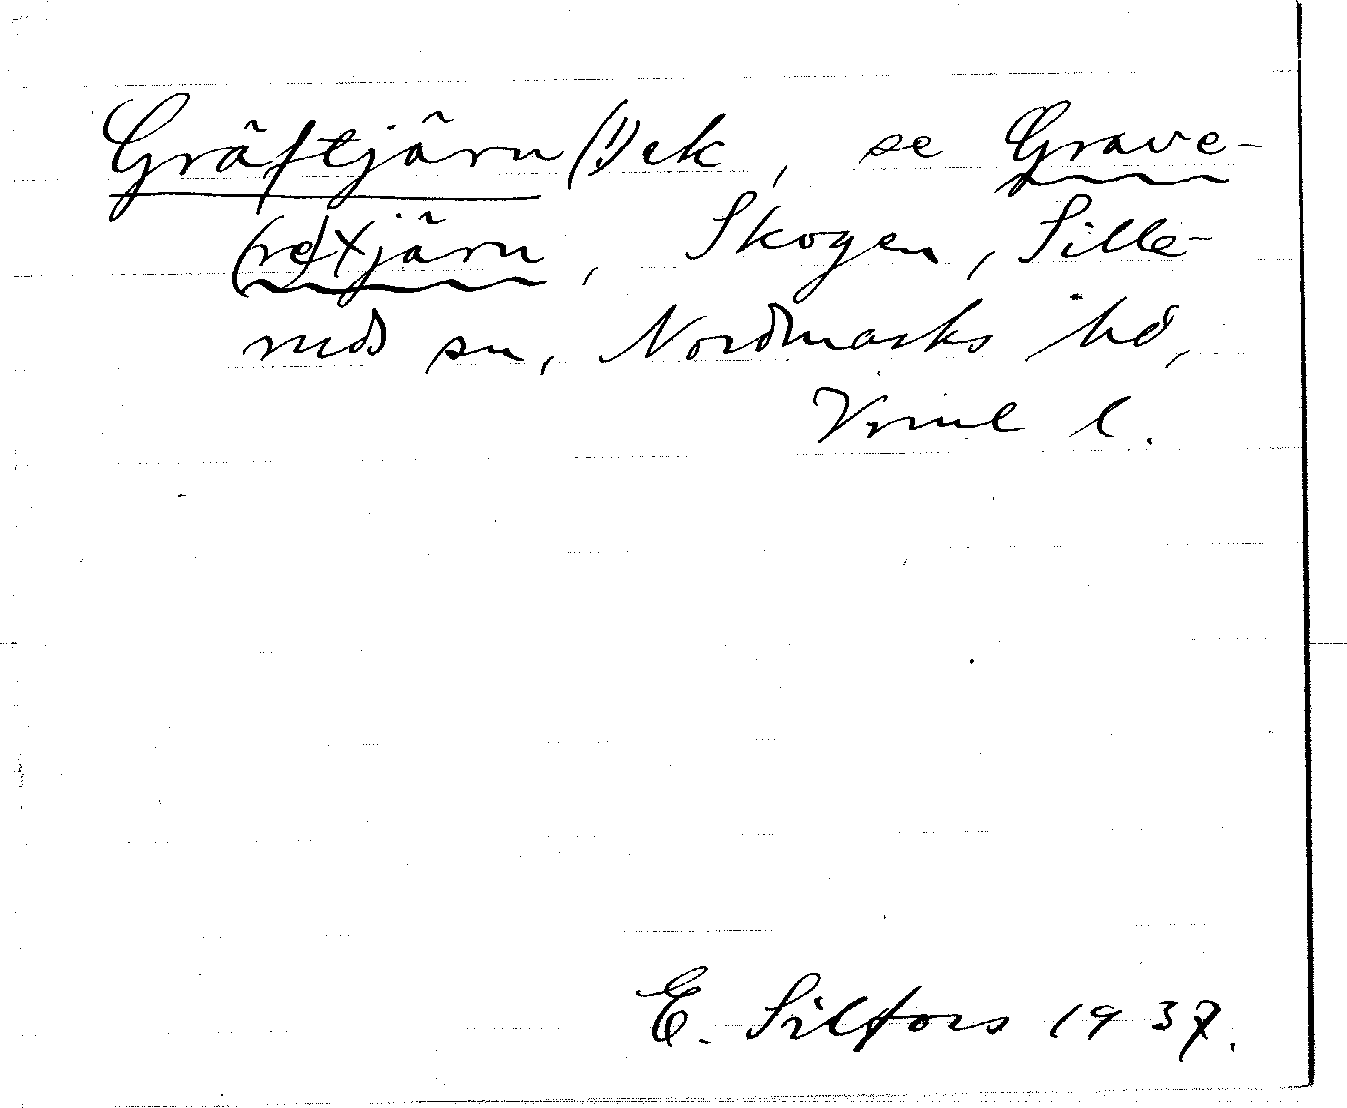 Gräftjärn (!) ek, se Grave-
(re)tjärn, Skogen, Sille-
ruds sn, Nordmarks hd,
Vrml l.
E. Silfors 1937.